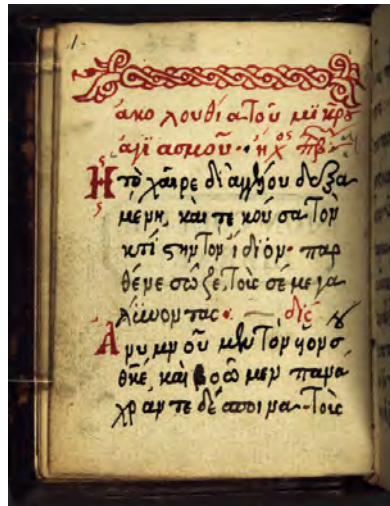 1
ἀκολουθία τοῦ μικροῦ
ἁγιασμοῦ· ἦχος πλ β
Ἡ τὸ χαῖρε δι ἀγγέλου δεξα
μένη, καὶ τεκοῦσα τὸν
κτίστην τὸν ἴδιον· παρ
θένε σῶζε, τοὺς σὲ μεγα
λύνοντας· δίς
Ἀνυμνοῦμεν τὸν υἱόν σου
θκε, καὶ βοῶμεν πανά
χραντε δέσποινα· τοὺς